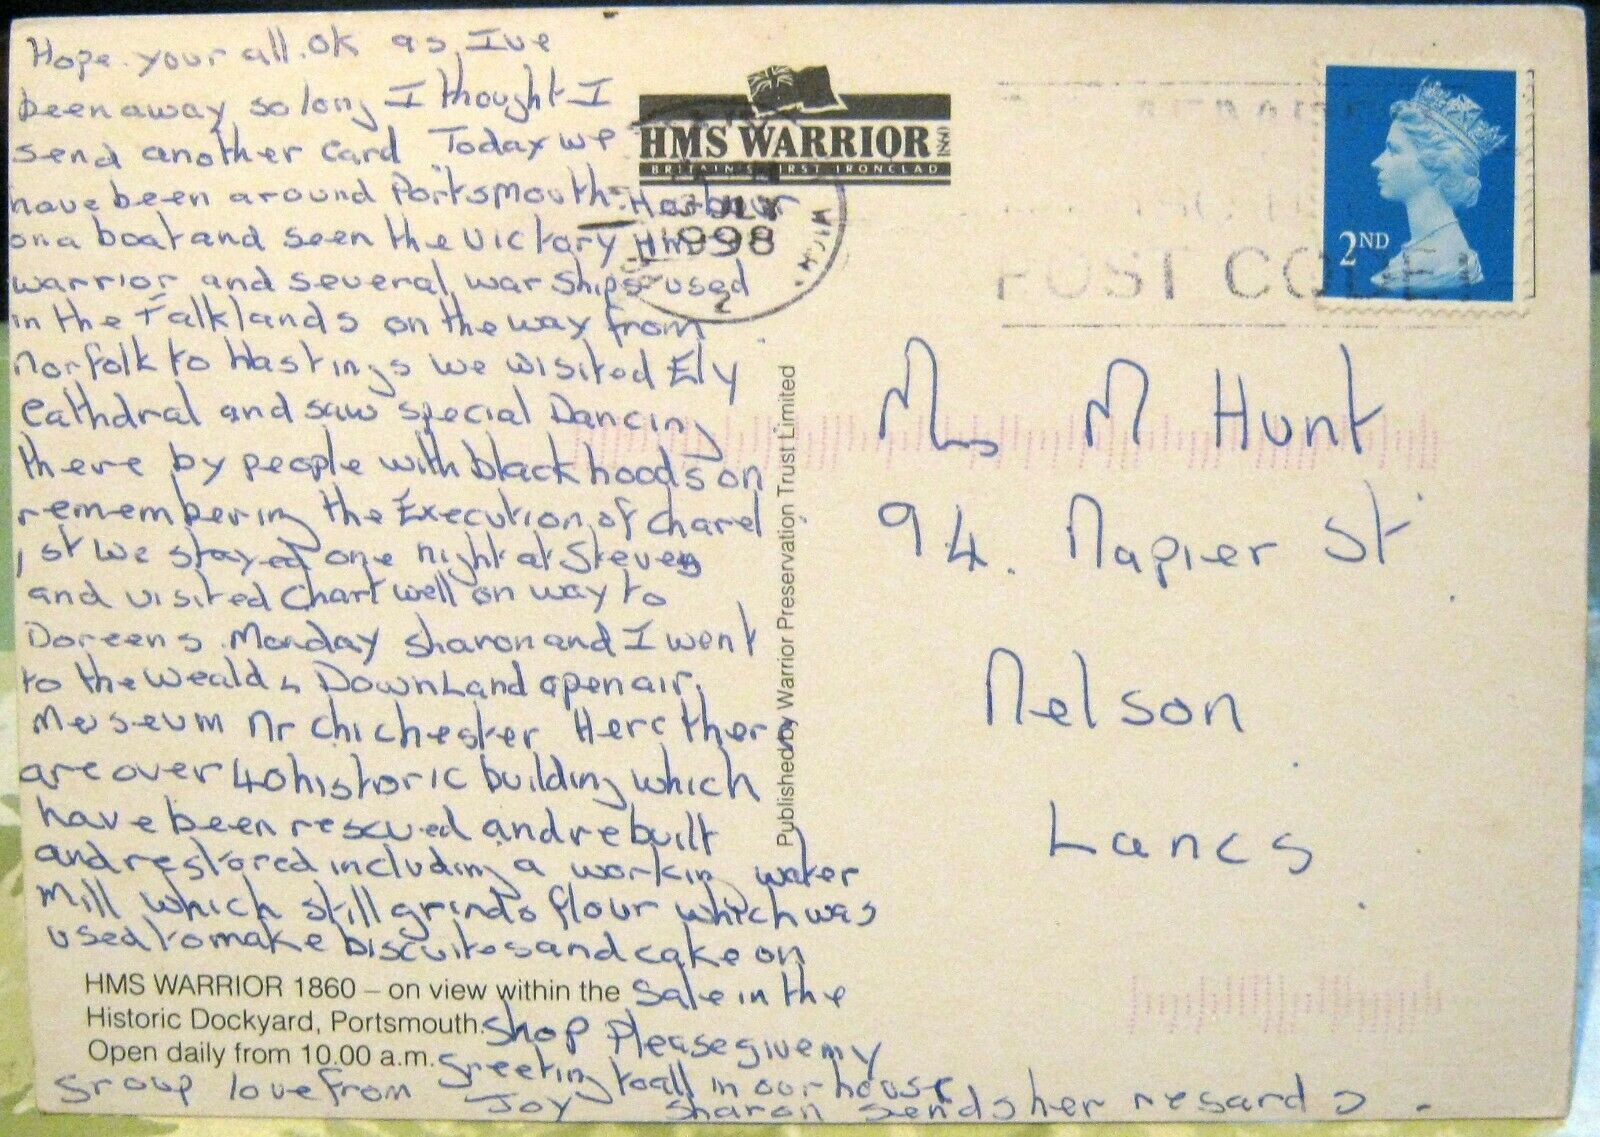 Hope your all ok as Ive
been away so long I thought I
send another card Today we
have been around Portsmouth Harbour
on a boat and seen the Victory HMS
warrior and several war ships used
in the Falklands on the way from
norfolk to Hastings we wisited Ely
Cathdral and saw special Dancing
there by people with black hoods on
remembering the Execution of charel
1st We stayed one night at Steves
and visited Chartwell on way to
Doreens Monday Sharon and I went
to the weald & DownLand open air
Meuseum Nr Chichester Here ther
are over 40 historic building which
have been rescued and rebuilt
and restored including a working water
mill which still grinds flour which was
used to make biscuites and cake on
Sale in the
Shop Please give my
greeting to all in our house
group love from Joy Sharon sends her regards.
HMS WARRIOR 1860
BRITAIN'S FIRST IRONCLAD
JLY
1998
2
POST CODE
2ND
Mrs M Hunt
94. Napier St
Nelson
Lancs
Published by Warrior Preservation Trust Limited
HMS WARRIOR 1860 – on view within the
Historic Dockyard, Portsmouth.
Open daily from 10.00 a.m.